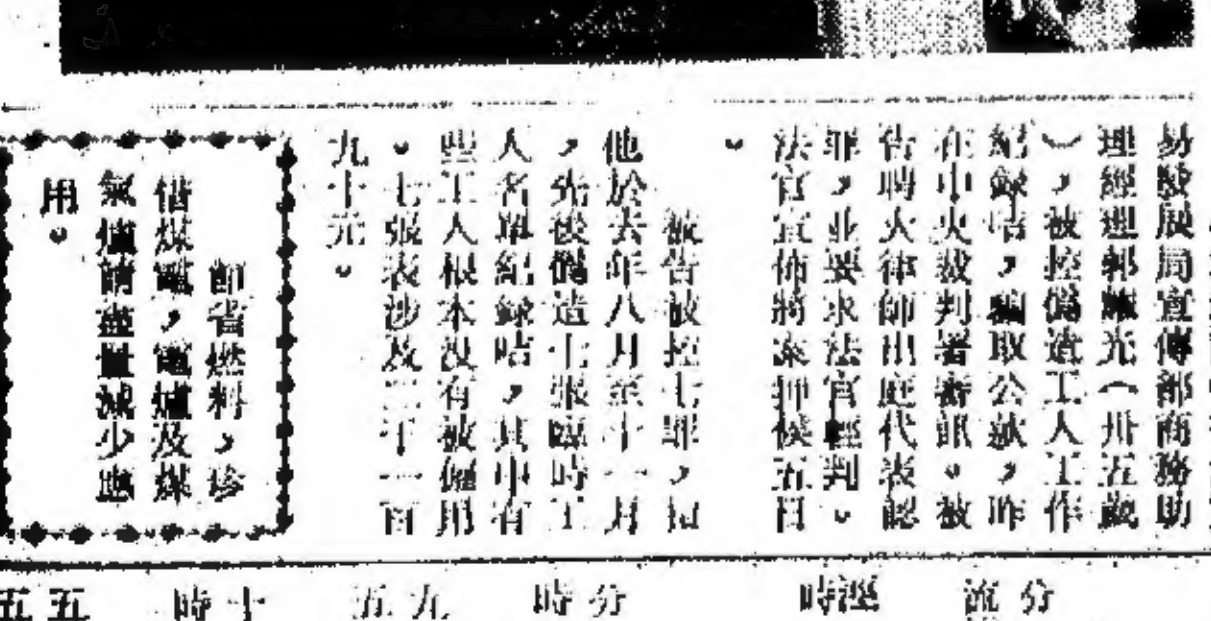 易發展局宣傳部商務助
理經理郭廉光（卅五歲
），被控偽造工人工作
紀錄咭，騙取公欵，昨
在中央裁判署審訊。被
告聘大律師出庭代表認
罪，並要求法官輕判。
法官宣佈將案押候五日
。
被告被控七罪，指
他於去年八月至十一月
，先後偽造七張臨時工
人名單紀錄咭，其中有
些工人根本沒有被僱用
。七張表涉及三千一百
九十元。
節省燃料，珍
惜煤電，電爐及煤
氣爐請盡量減少應
用。
分 流
時
分 時
九 五
十 時
五 五